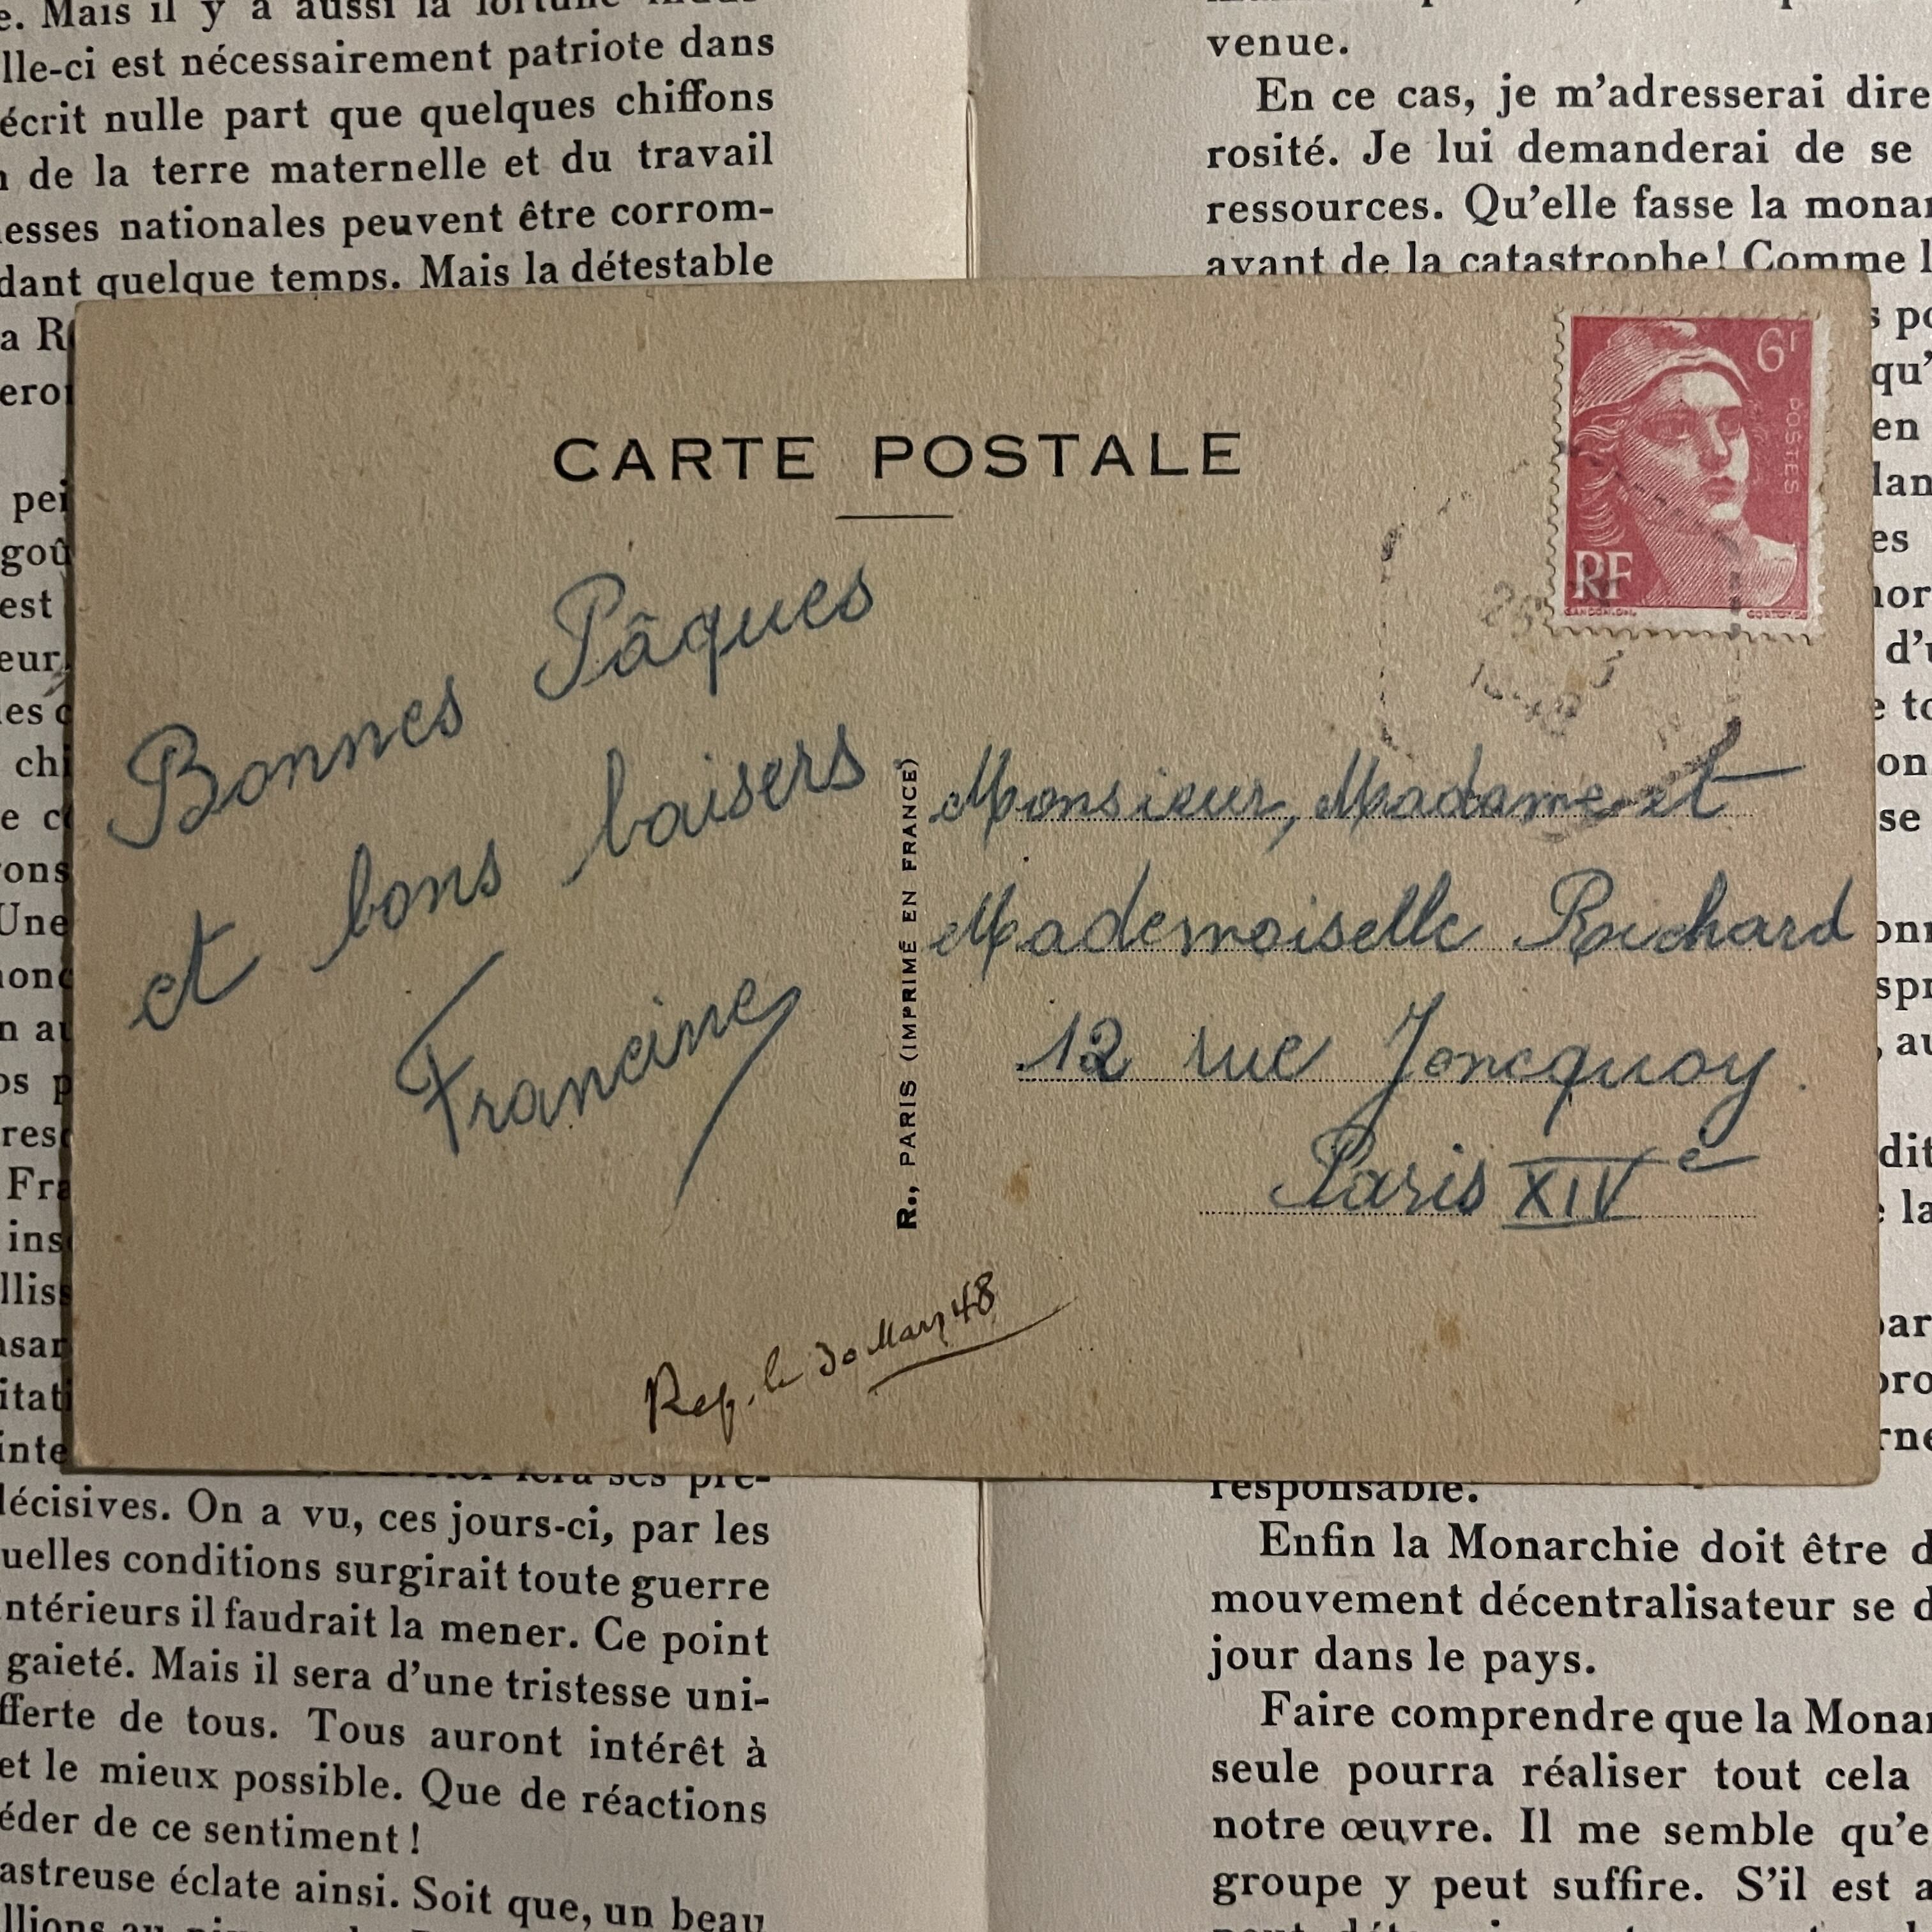 e. Mais il y a aussi la fortune
lle-ci est nécessairement patriote dans
écrit nulle part que quelques chiffons
n de la terre maternelle et du travail
esses nationales peuvent être corrom-
dant quelque temps. Mais la détestable
a R
eron
pei
goû
est
eur
les
chi
e c
ons
Une
n au
os p
res
Fra
ins
lliss
itati
inte
sera ses pré-
décisives. On a vu, ces jours-ci, par les
uelles conditions surgirait toute guerre
ntérieurs il faudrait la mener. Ce point
gaieté. Mais il sera d'une tristesse uni-
fferte de tous. Tous auront intérêt à
et le mieux possible. Que de réactions
éder de ce sentiment !
astreuse éclate ainsi. Soit que, un beau
venue.
En ce cas, je m'adresserai dire
rosité. Je lui demanderai de se
ressources. Qu'elle fasse la monar
avant de la catastrophe! Comme l
s po
qu'
en
lan
es
d'u
e to
on
se
onn
spr
, au
dit
e la
par
pro
rne
responsable.
Enfin la Monarchie doit être d
mouvement décentralisateur se d
jour dans le pays.
Faire comprendre que la Monar
seule pourra réaliser tout cela
notre œuvre. Il me semble qu'e
groupe y peut suffire. S'il est a
CARTE POSTALE
6F
POSTES
RF
GANDON.DEL.
CORTOT.SC
Bonnes Pâques
et bons baisers
Francine
R., PARIS (IMPRIMÉ EN FRANCE)
Monsieur, Madame et
Mademoiselle Ruchard
12 rue Joncquoy.
Paris XIVe
Rep. le 30 Mars 48